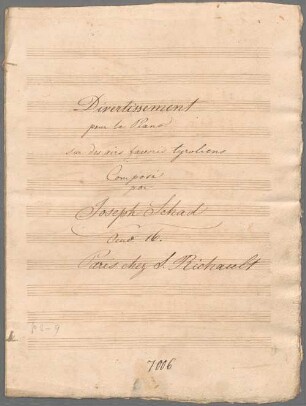 Divertissement
pour le Piano
sur des airs favoris tyroliens
Composé
par
Joseph Schad
Oeuv 16.
Paris chez S. Richault
7006